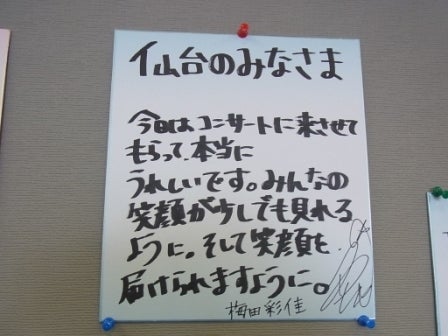 仙台のみなさま
今日はコンサートに来させて
もらって、本当に
うれしいです。みんなの
笑顔が少しでも見れる
ように。そして笑顔を
届けられますように。
梅田彩佳